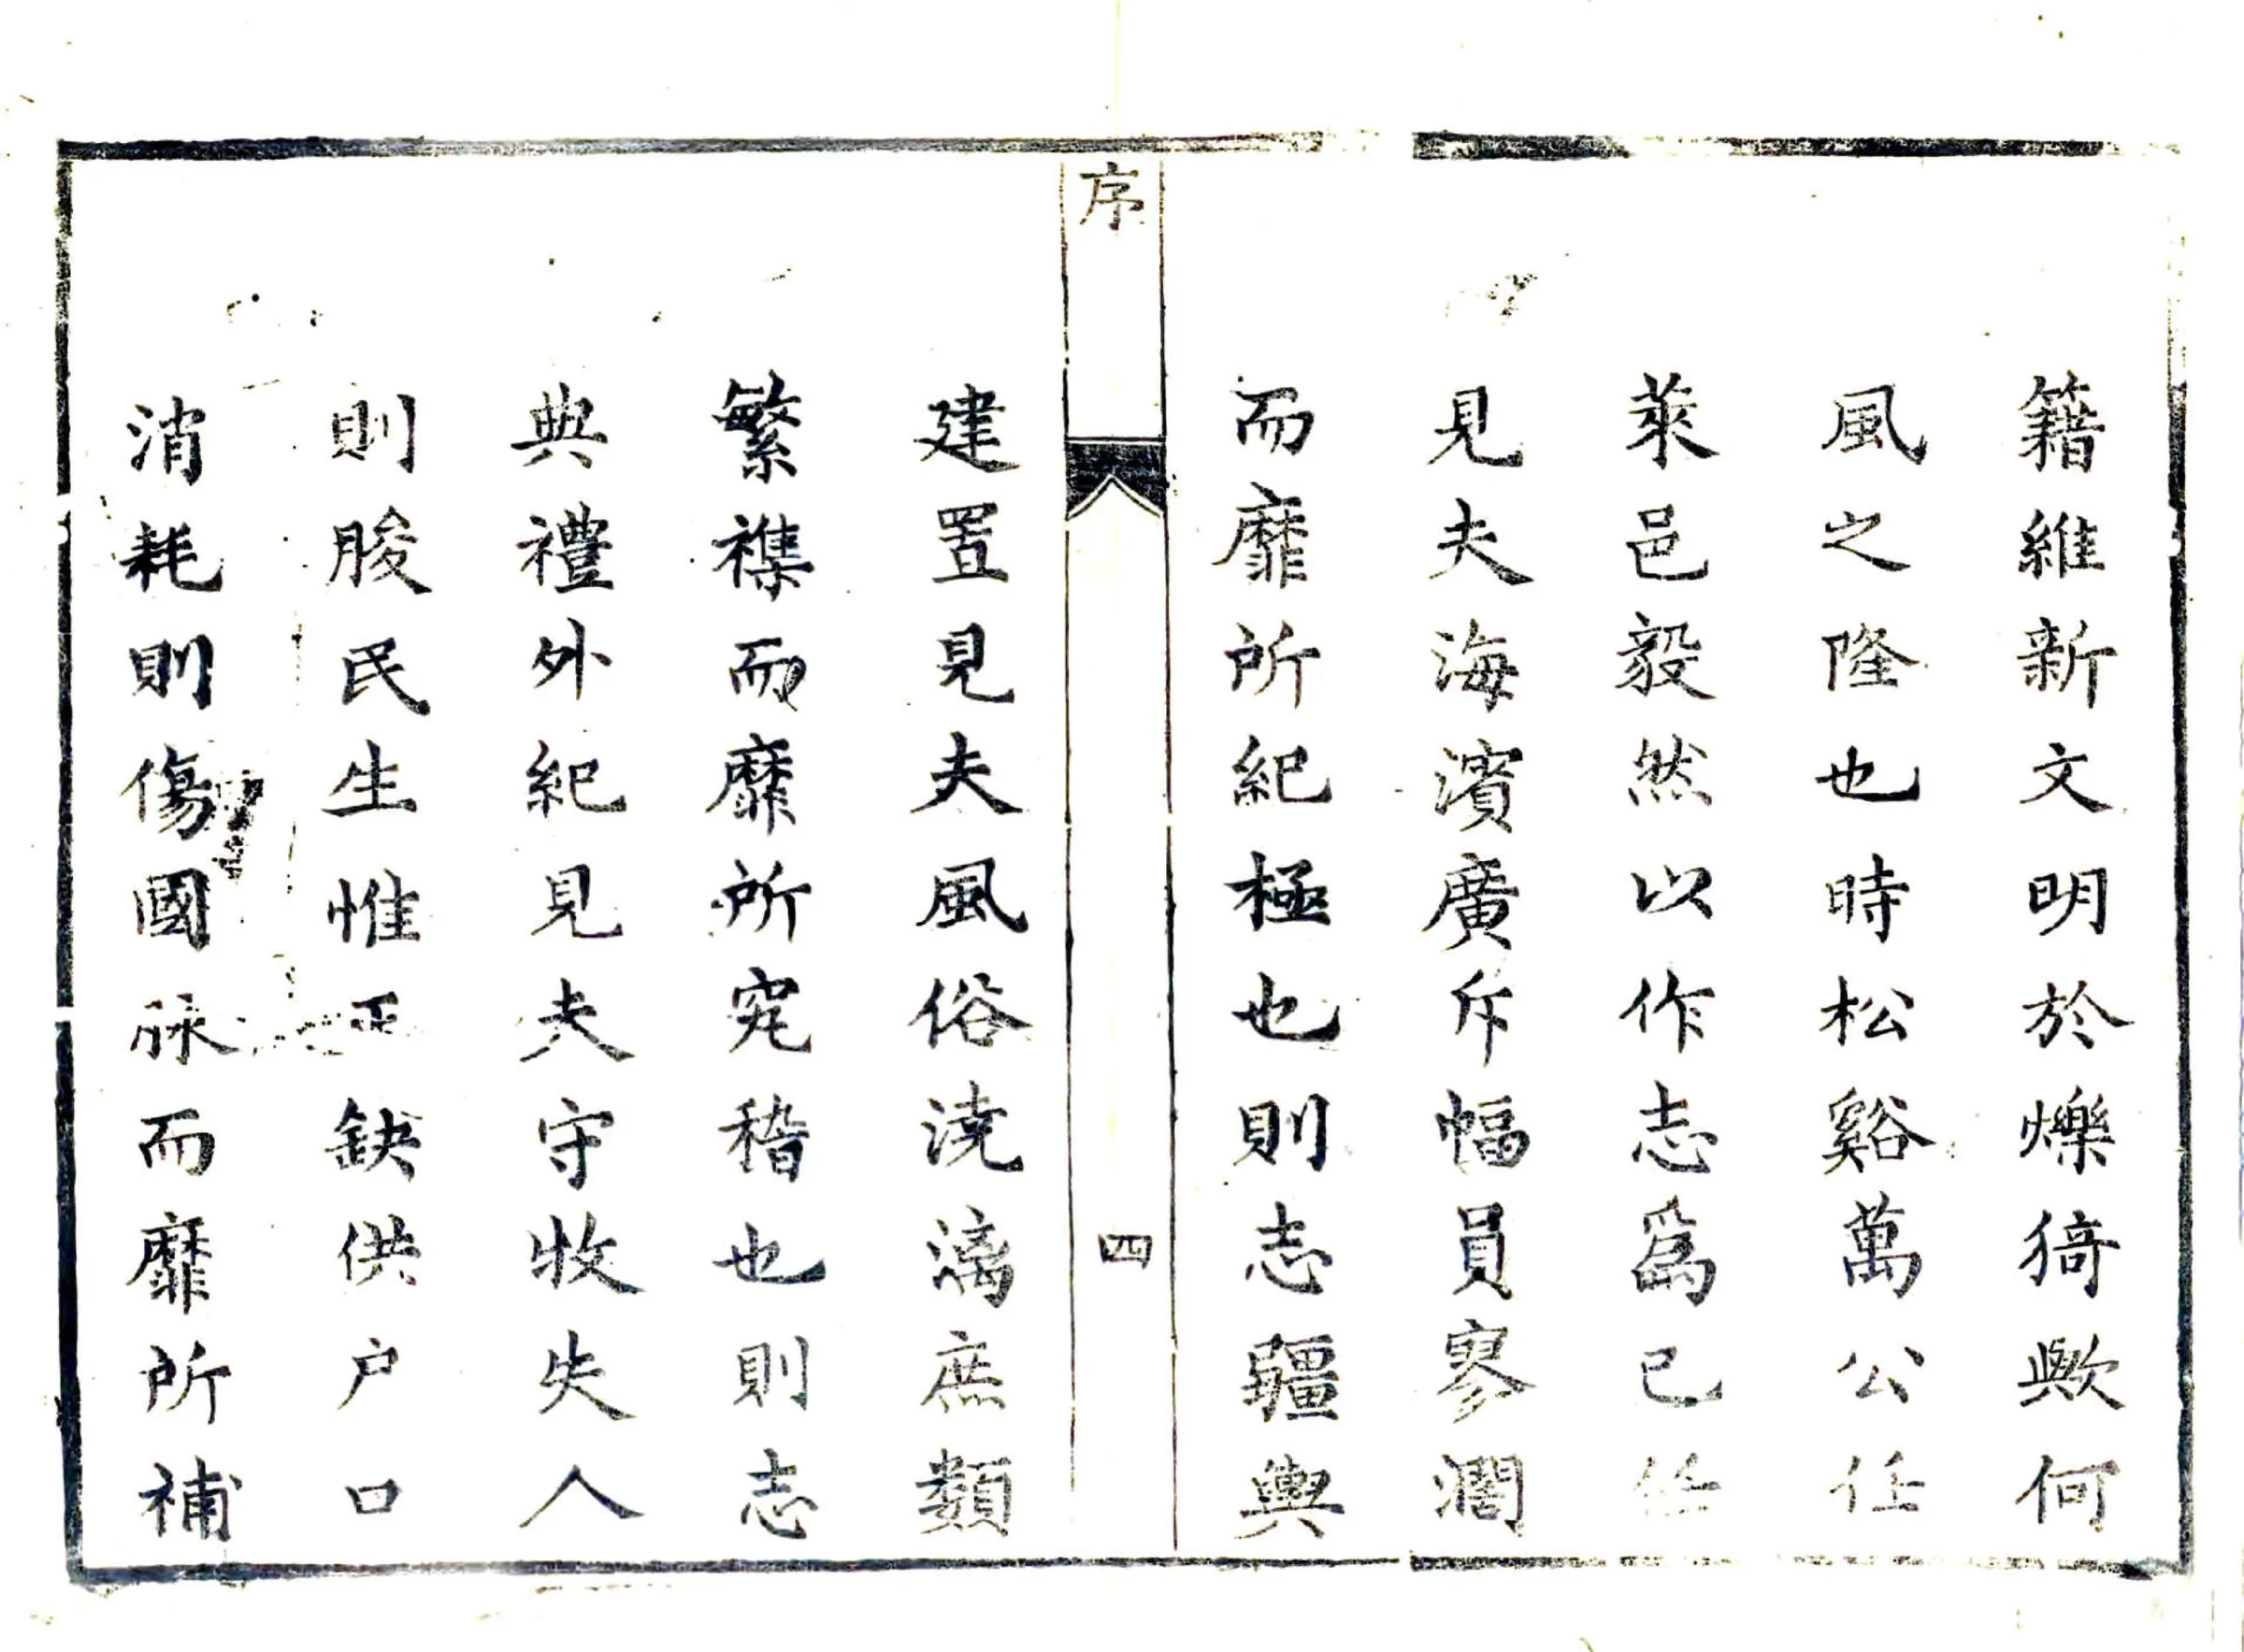 籍維新文明於爍猗歟何
風之隆也時松谿萬公任
萊邑毅然以作志爲已任
見夫海濱廣斥幅員寥濶
而靡所紀極也則志疆輿
序
四
建置見夫風俗澆漓庶類
繁襍而靡所究稽也則志
典禮外紀見夫守牧失人
則朘民生惟正缺供户口
消耗則傷國脉而靡所補